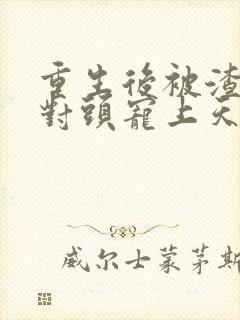 重生後被渣
對頭寵上天
威尔士蒙茅斯